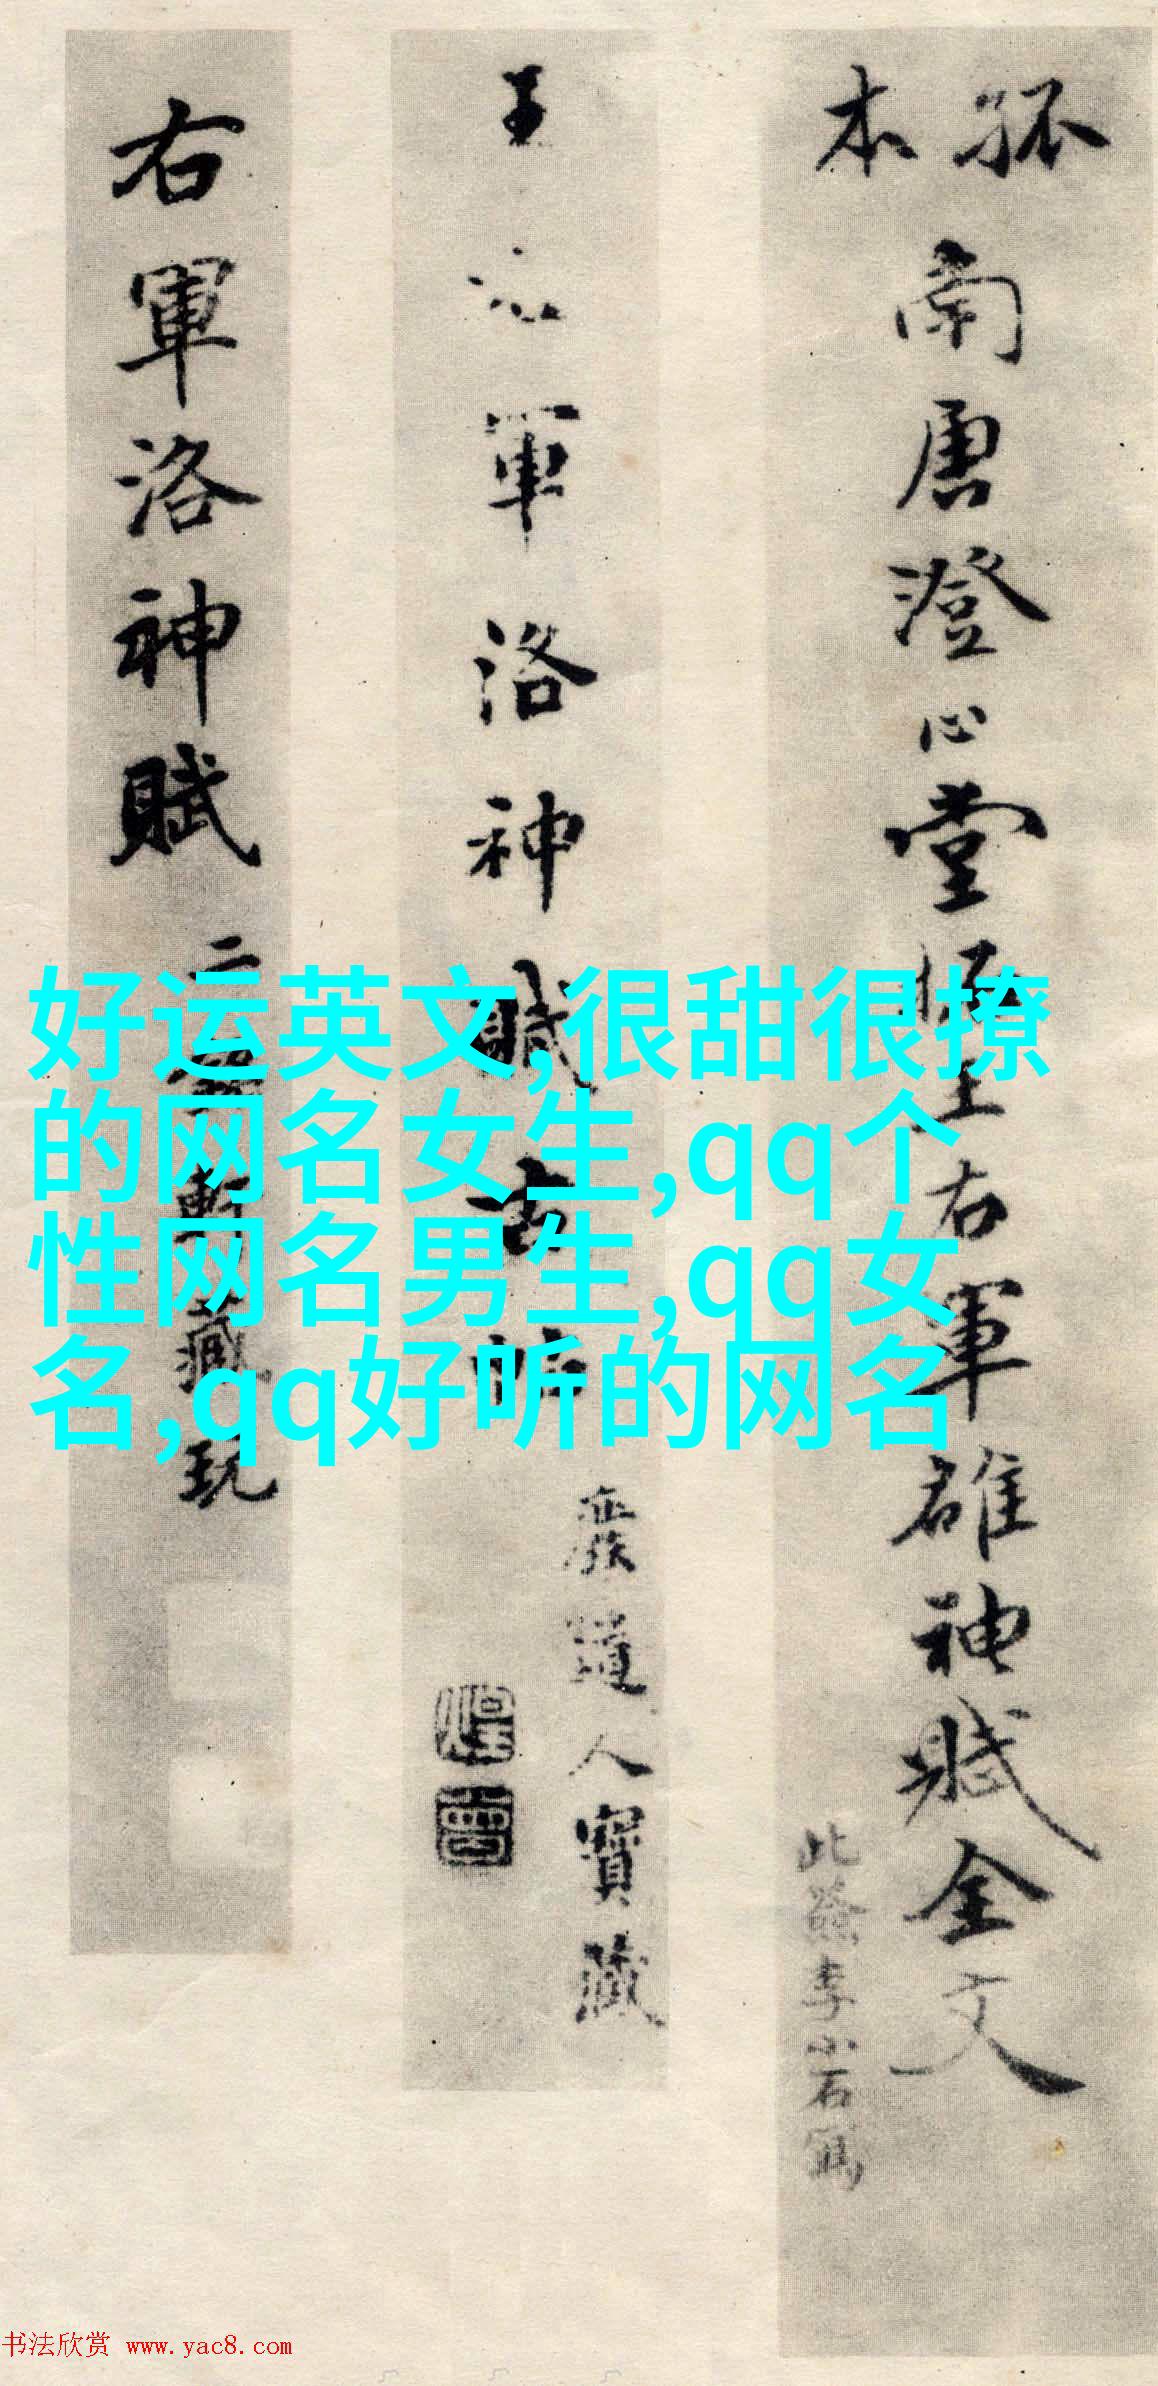 孤本
南唐澄心堂
王右軍雒神賦全文
此籤李小石寫
軍洛神賦古
道人寶藏
右軍洛神賦
藏玩
好运英文,很甜很撩
的网名女生,qq个
性网名男生,qq女
名,qq好听的网名
书法欣赏 www.yac8.com